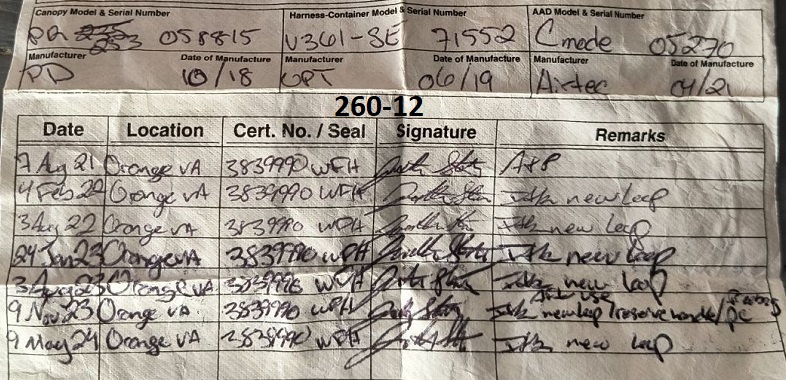 Canopy Model & Serial Number Harness-Container Model & Serial Number AAD Model & Serial Number
PR 253 058815 V361-SE 71552 Cmode 05270
Manufacturer Date of Manufacture Manufacturer Date of Manufacture Manufacturer Date of Manufacture
PD 10/18 UPT 06/19 Airtec 04/21
260-12
Date Location Cert. No. / Seal Signature Remarks
7 Aug 21 Orange VA 3839990 WFH A&P
4 Feb 22 Orange VA 3839990 WFH I&R new loop
3 Aug 22 Orange VA 3839990 WFH I&R new loop
24 Jan 23 Orange VA 3839990 WFH I&R new loop
3 Aug 23 Orange VA 3839990 WFH I&R new loop
After use
9 Nov 23 Orange VA 3839990 WFH I&R new loop/reserve handle/ PC
9 May 24 Orange VA 3839990 WFH I&R new loop